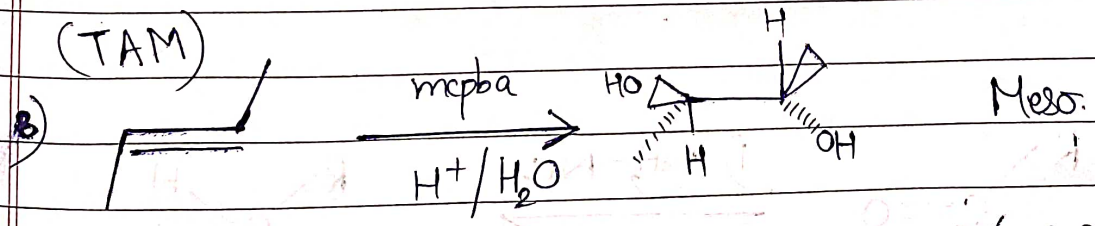 (TAM)
B) mcpba H⁺/H₂O HO H H OH Meso.